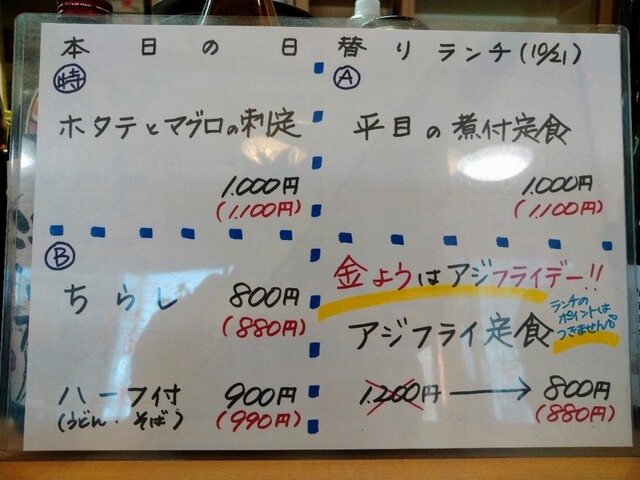 本日の日替りランチ(10/21)
特
ホタテとマグロの刺定
1.000円
(1.100円)
A
平目の煮付定食
1.000円
(1.100円)
B
ちらし 800円
(880円)
ハーフ付 900円
(うどん・そば) (990円)
金ようはアジフライデー!!
アジフライ定食
ランチの
ポイントは
つきません
1.200円 → 800円
(880円)